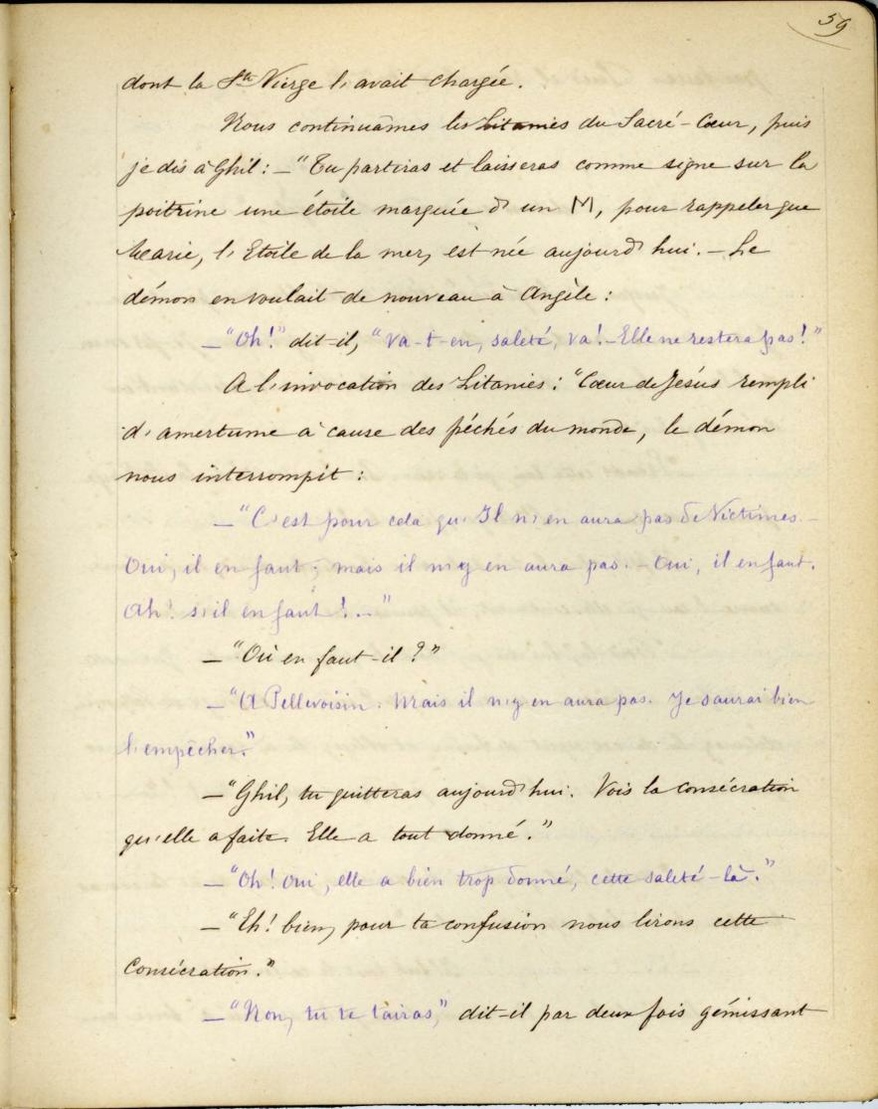 59
dont la Ste Vierge l'avait chargée.
Nous continuâmes les Litanies du Sacré-Cœur, puis
je dis à Ghil : — "Tu partiras et laisseras comme signe sur la
poitrine une étoile marquée d'un M, pour rappeler que
Marie, l'Etoile de la mer, est née aujourd'hui. — Le
démon en voulait de nouveau à Angèle :
— "Oh!" dit-il, "va-t-en, saleté, va! — Elle ne restera pas!"
A l'invocation des Litanies : "Cœur de Jésus rempli
d'amertume à cause des péchés du monde, le démon
nous interrompit :
— "C'est pour cela qu'Il n'en aura pas de Victimes. —
Oui, il en faut ; mais il n'y en aura pas. — Oui, il en faut.
Ah! s'il en faut! — "
— "Où en faut-il ?"
— "A Pellevoisin. Mais il n'y en aura pas. Je saurai bien
l'empêcher."
— "Ghil, tu quitteras aujourd'hui. Vois la consécration
qu'elle a faite. Elle a tout donné."
— "Oh! Oui, elle a bien trop donné, cette saleté-là."
— "Eh! bien, pour ta confusion nous lirons cette
Consécration."
— "Non, tu te tairas," dit-il par deux fois gémissant